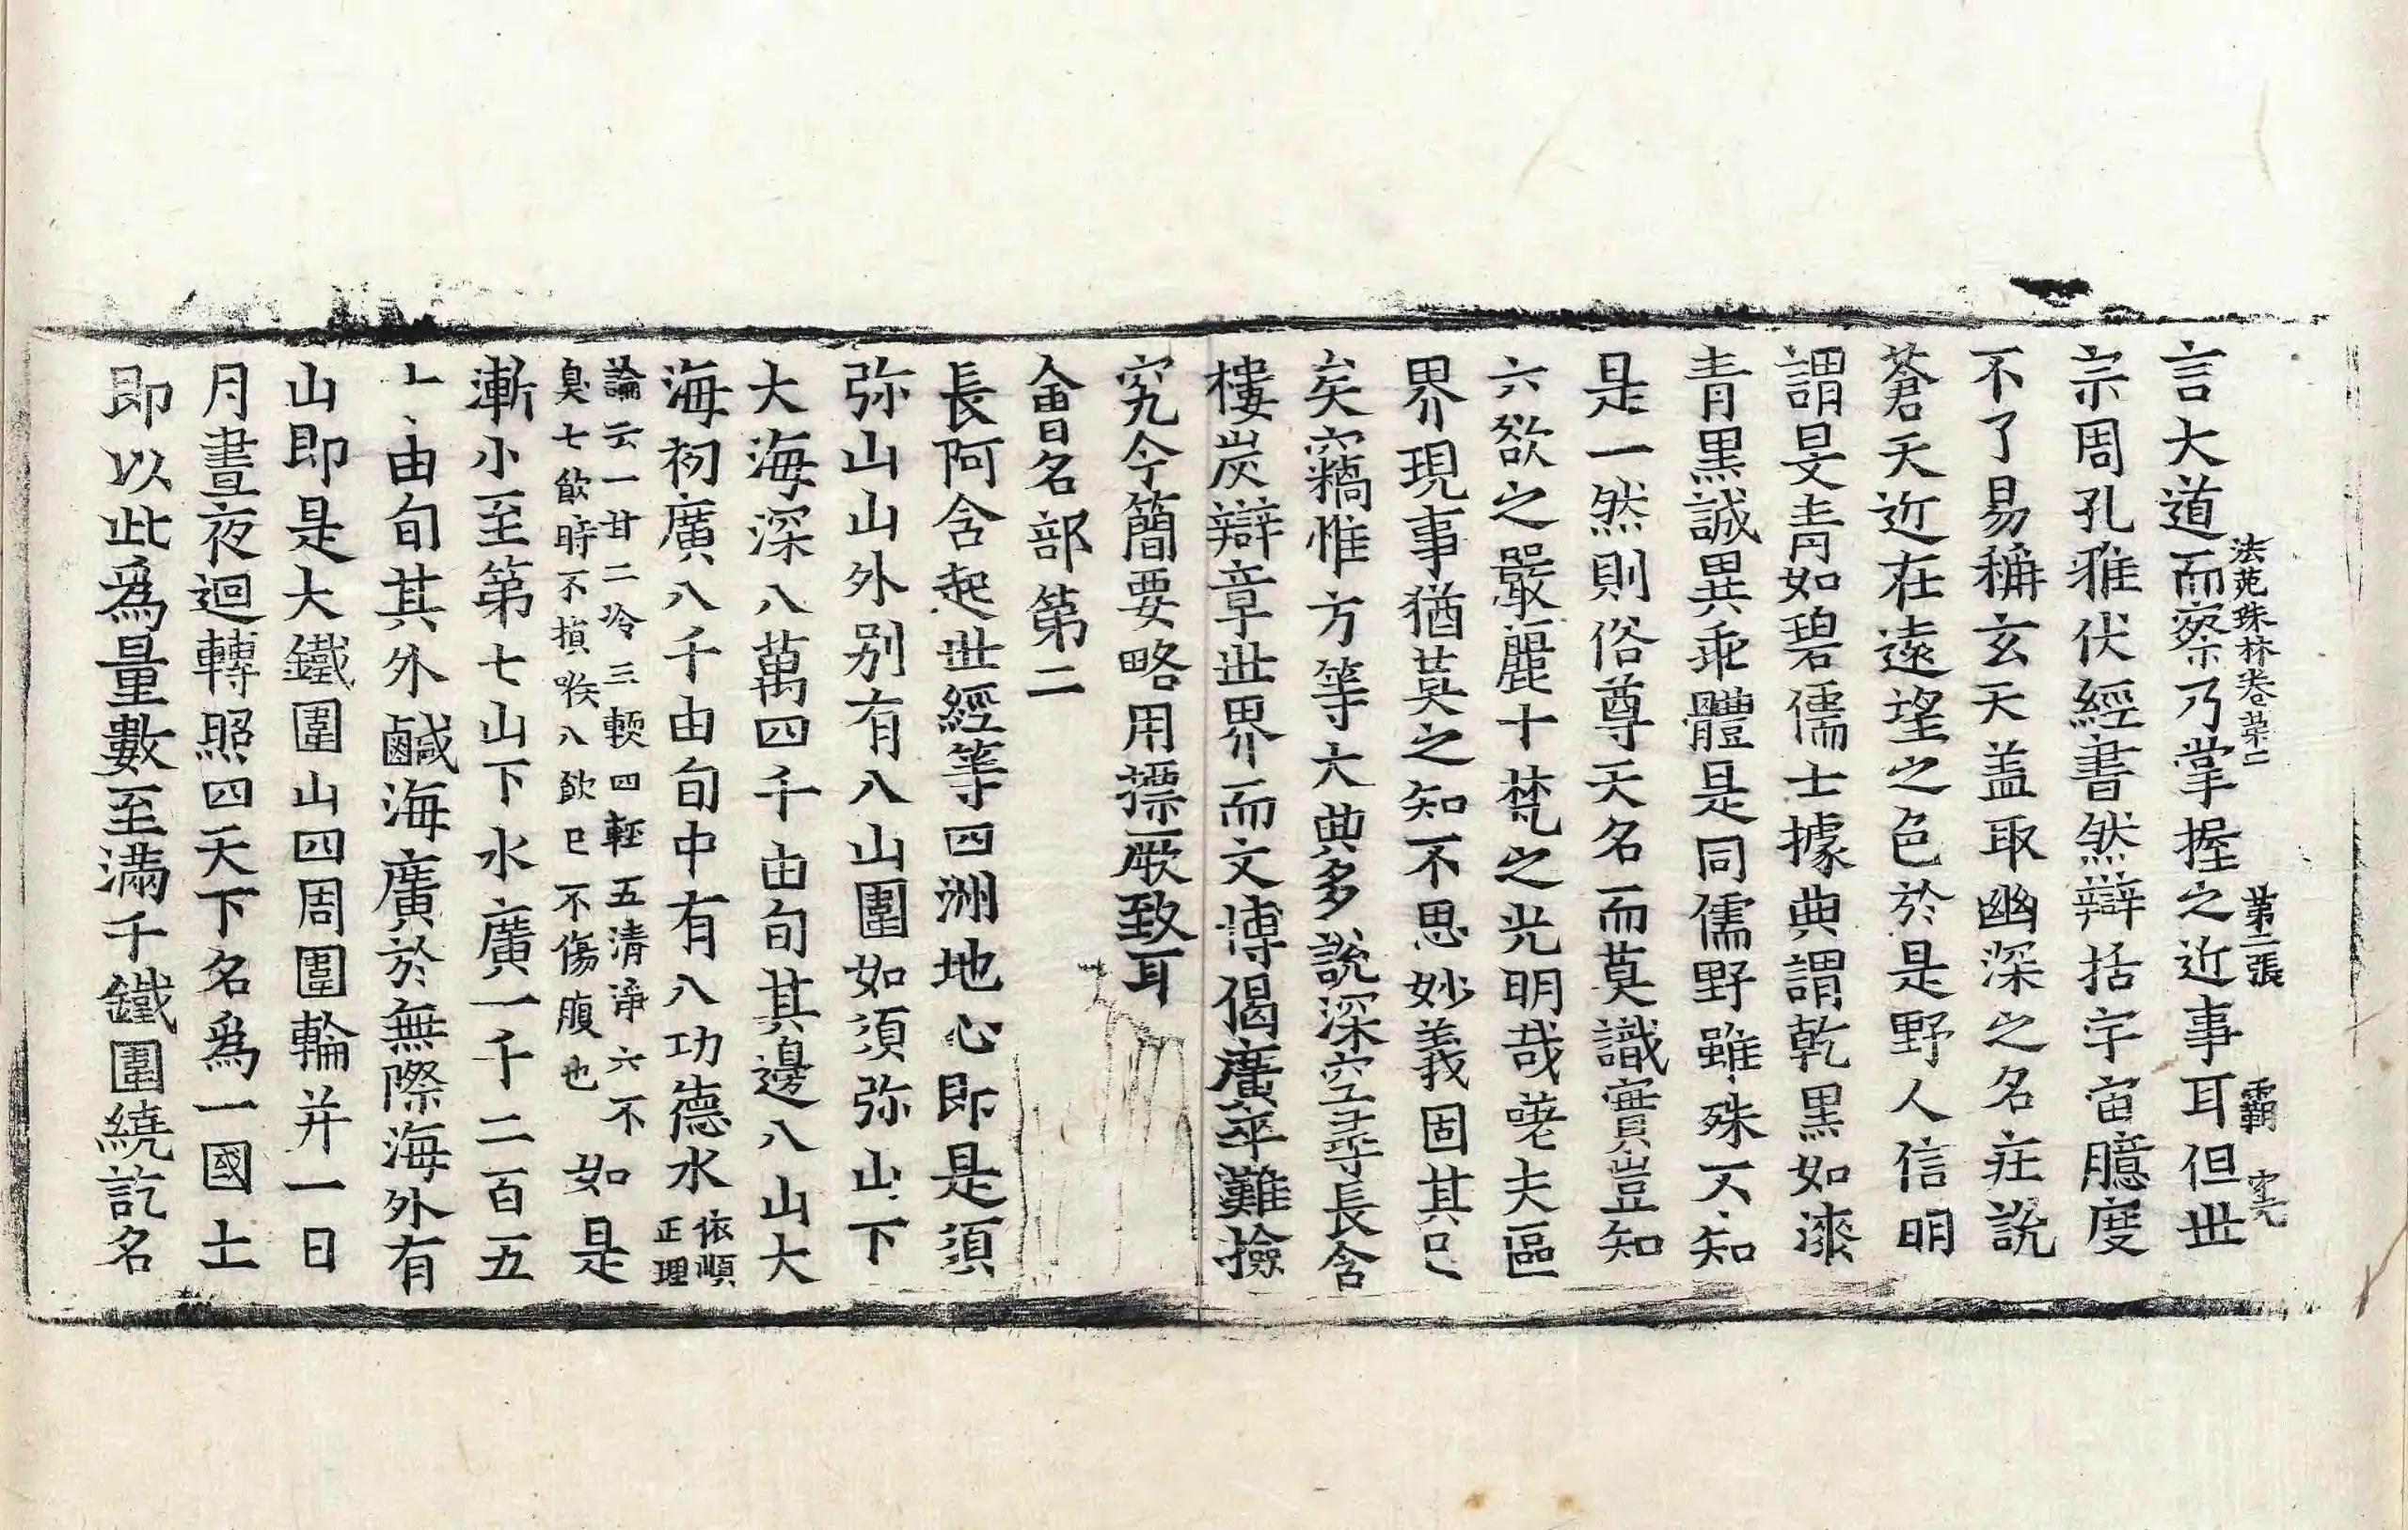 言大道而察乃掌握之近事耳但世
法苑珠林卷第二 第二張 霸
宗周孔雅伏經書然辯括宇宙臆度
不了易稱玄天盖取幽深之名庄說
蒼天近在遠望之色於是野人信明
謂旻青如碧儒士據典謂乾黑如漆
青黑誠異乖體是同儒野雖殊不知
是一然則俗尊天名而莫識實豈知
六欲之嚴麗十梵之光明哉嗟夫區
界現事猶莫之知不思妙義固其已
矣竊惟方等大典多說深空尋長含
樓炭辯章世界而文博偈廣卒難撿
究今簡要略用摽厥致耳
會名部第二
長阿含起世經等四洲地心即是須
弥山山外别有八山圍如須弥山下
大海深八萬四千由旬其邊八山大
海初廣八千由旬中有八功德水依順
正理
論云一甘二冷三輭四輕五清淨六不
臭七飲時不損喉八飲已不傷腹也如是
漸小至第七山下水廣一千二百五
由旬其外鹹海廣於無際海外有
山即是大鐵圍山四周圍輪并一日
月晝夜迴轉照四天下名爲一國土
即以此爲量數至滿千鐵圍繞訖名